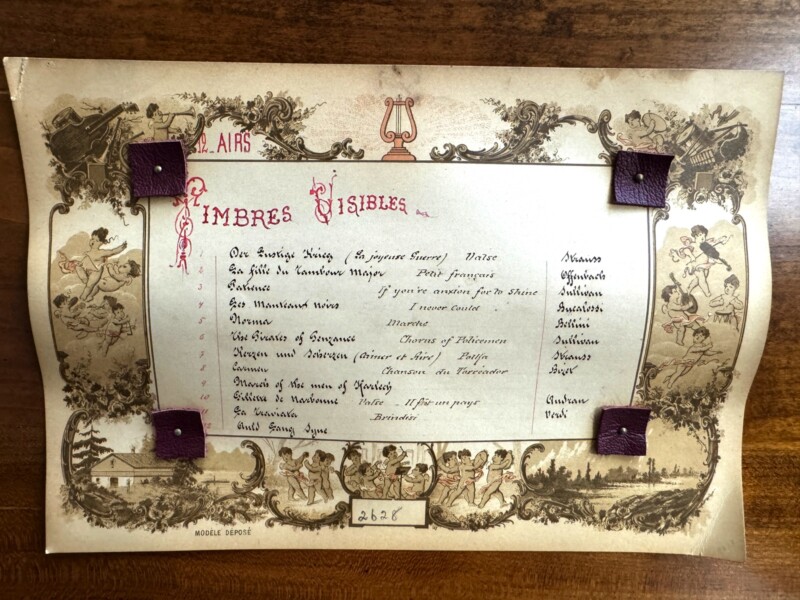 12 AIRS
TIMBRES VISIBLES
1 Der Lustige Krieg (La joyeuse Guerre) Valse Strauss
2 La fille du Tambour Major Petit français Offenbach
3 Patience If you're anxion for to Shine Sullivan
4 Les Manteaux noirs I never Could Bucalossi
5 Norma Marche Bellini
6 The Pirates of Penzance Chorus of Policemen Sullivan
7 Kerzen und Scherzen (Aimer et Rire) Polka Strauss
8 Carmen Chanson du Torréador Bizet
9 March of the men of Harlech
10 Gillette de Narbonne Valse Il fût un pays Audran
11 La Traviata Brindisi Verdi
Auld Lang Syne
2628
MODÈLE DÉPOSÉ